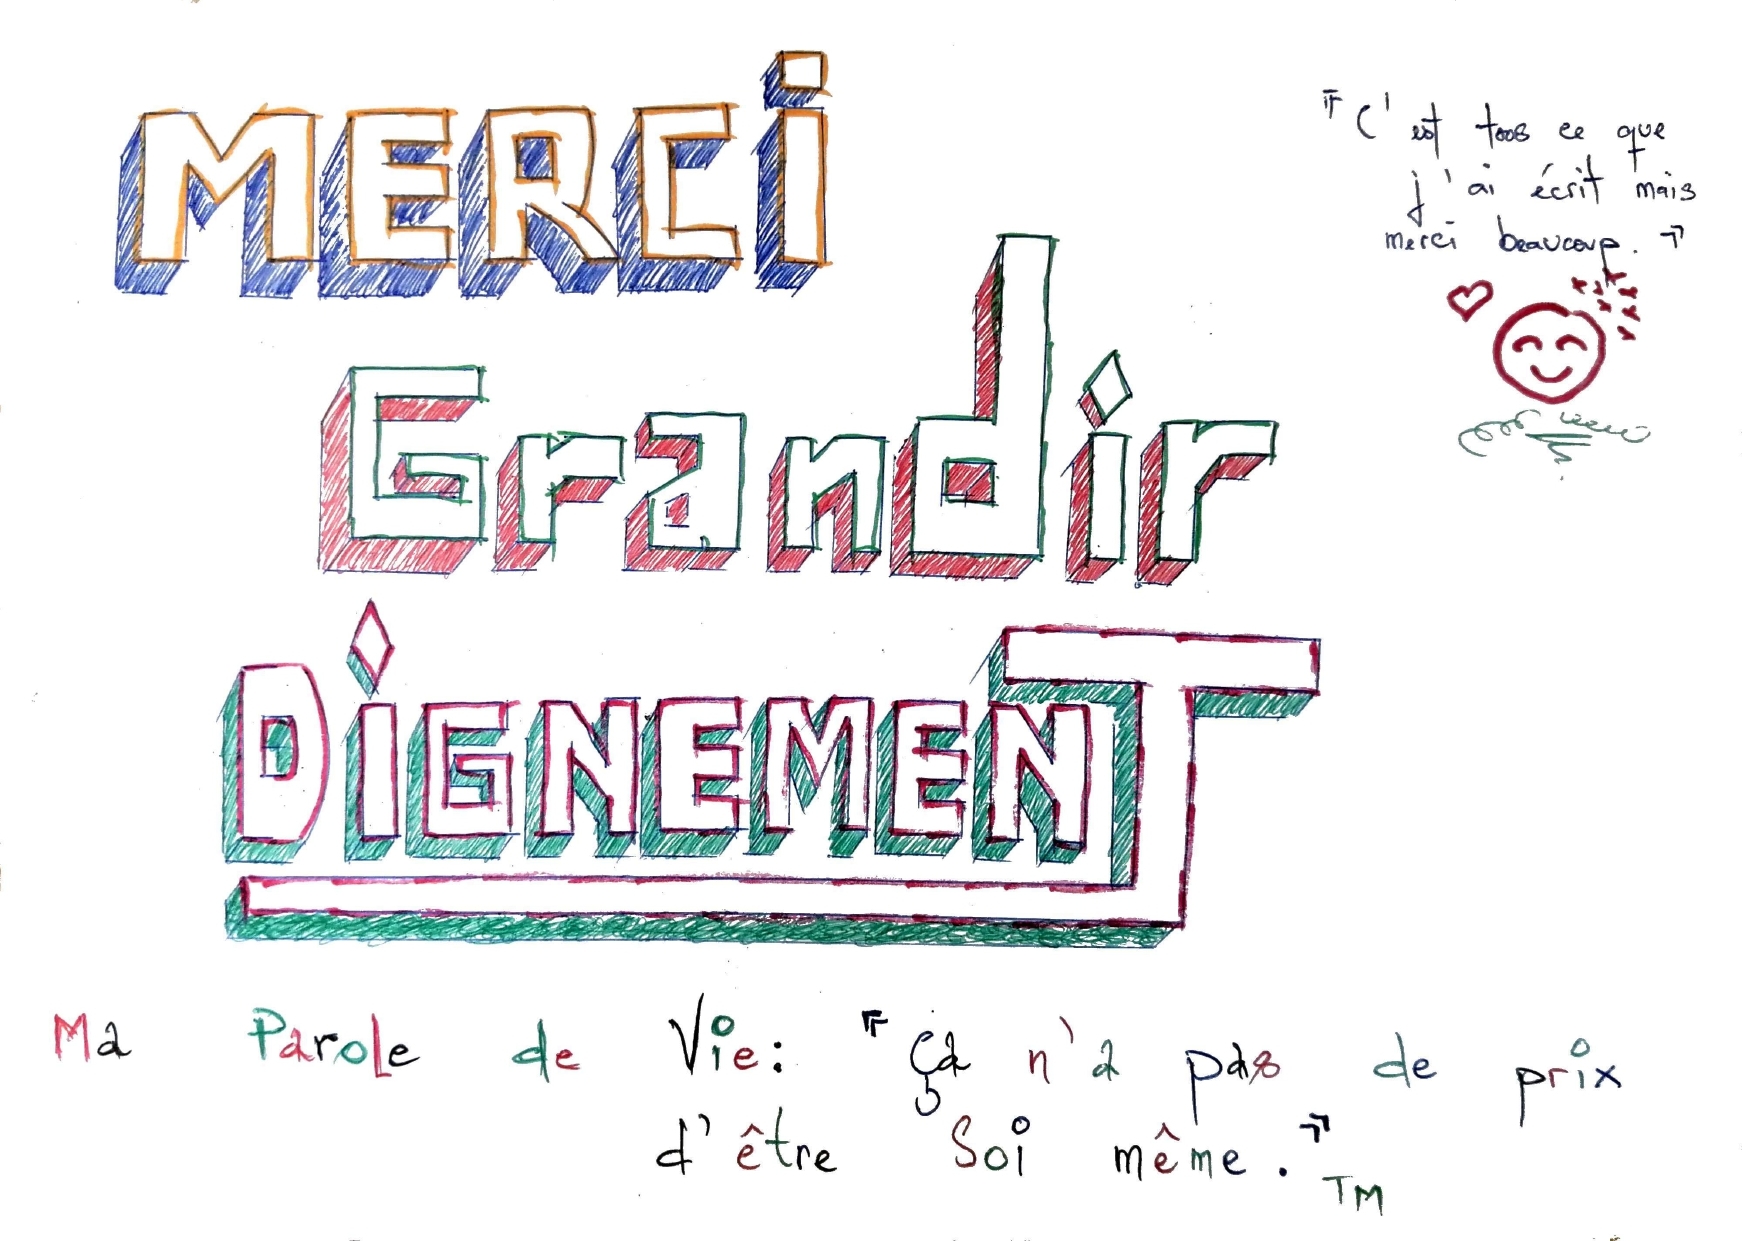 MERCi
『C'est tous ce que
j'ai écrit mais
merci beaucoup.』
Grandir
DiGNEMENT
Ma Parole de Vie: 『Ça n'a pas de prix
d'être Soi même.』
TM